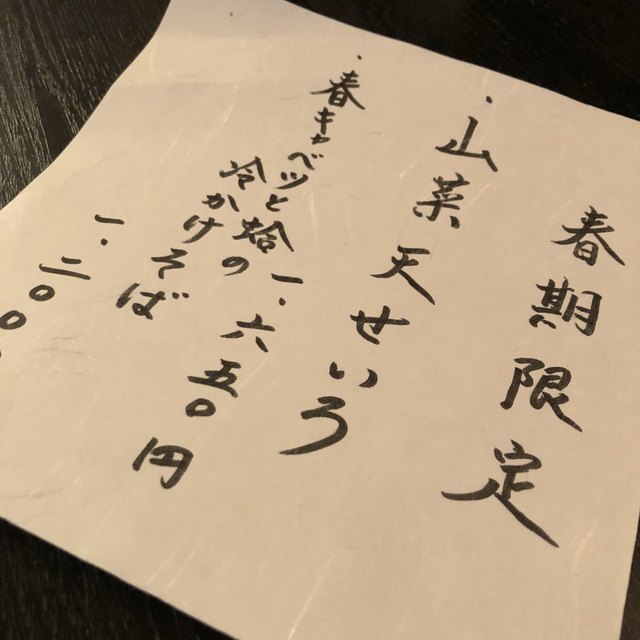 春期限定
・山菜天せいろ
一・六五〇円
・春キャベツと蛤の
冷かけそば
一・二〇〇